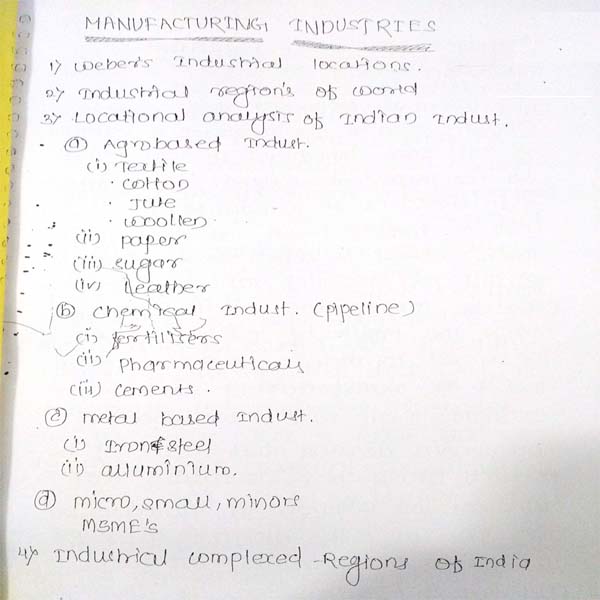 MANUFACTURING INDUSTRIES
1) Weber's Industrial locations.
2) Industrial region's of world
3) Locational analysis of Indian Indust.
(a) Agrobased Indust.
(i) Textile
· cotton
· Jute
· woollen
(ii) paper
(iii) sugar
(iv) leather
(b) chemical Indust. (pipeline)
(i) fertilisers
(ii) Pharmaceuticals
(iii) cements.
(c) metal based Indust.
(i) Iron & steel
(ii) alluminium.
(d) micro, small, minors
MSME's
4) Industrical complexed -Regions of India